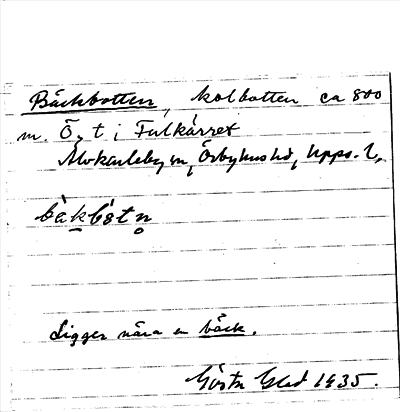 Bäckbotten, kolbotten ca 800
m. Ö, t i Fulkärret
Älvkarleby sn, Örbyhus hd, Upps. l.
bäkbòtn̥
Ligger nära en bäck.
Gösta Gled 1935.